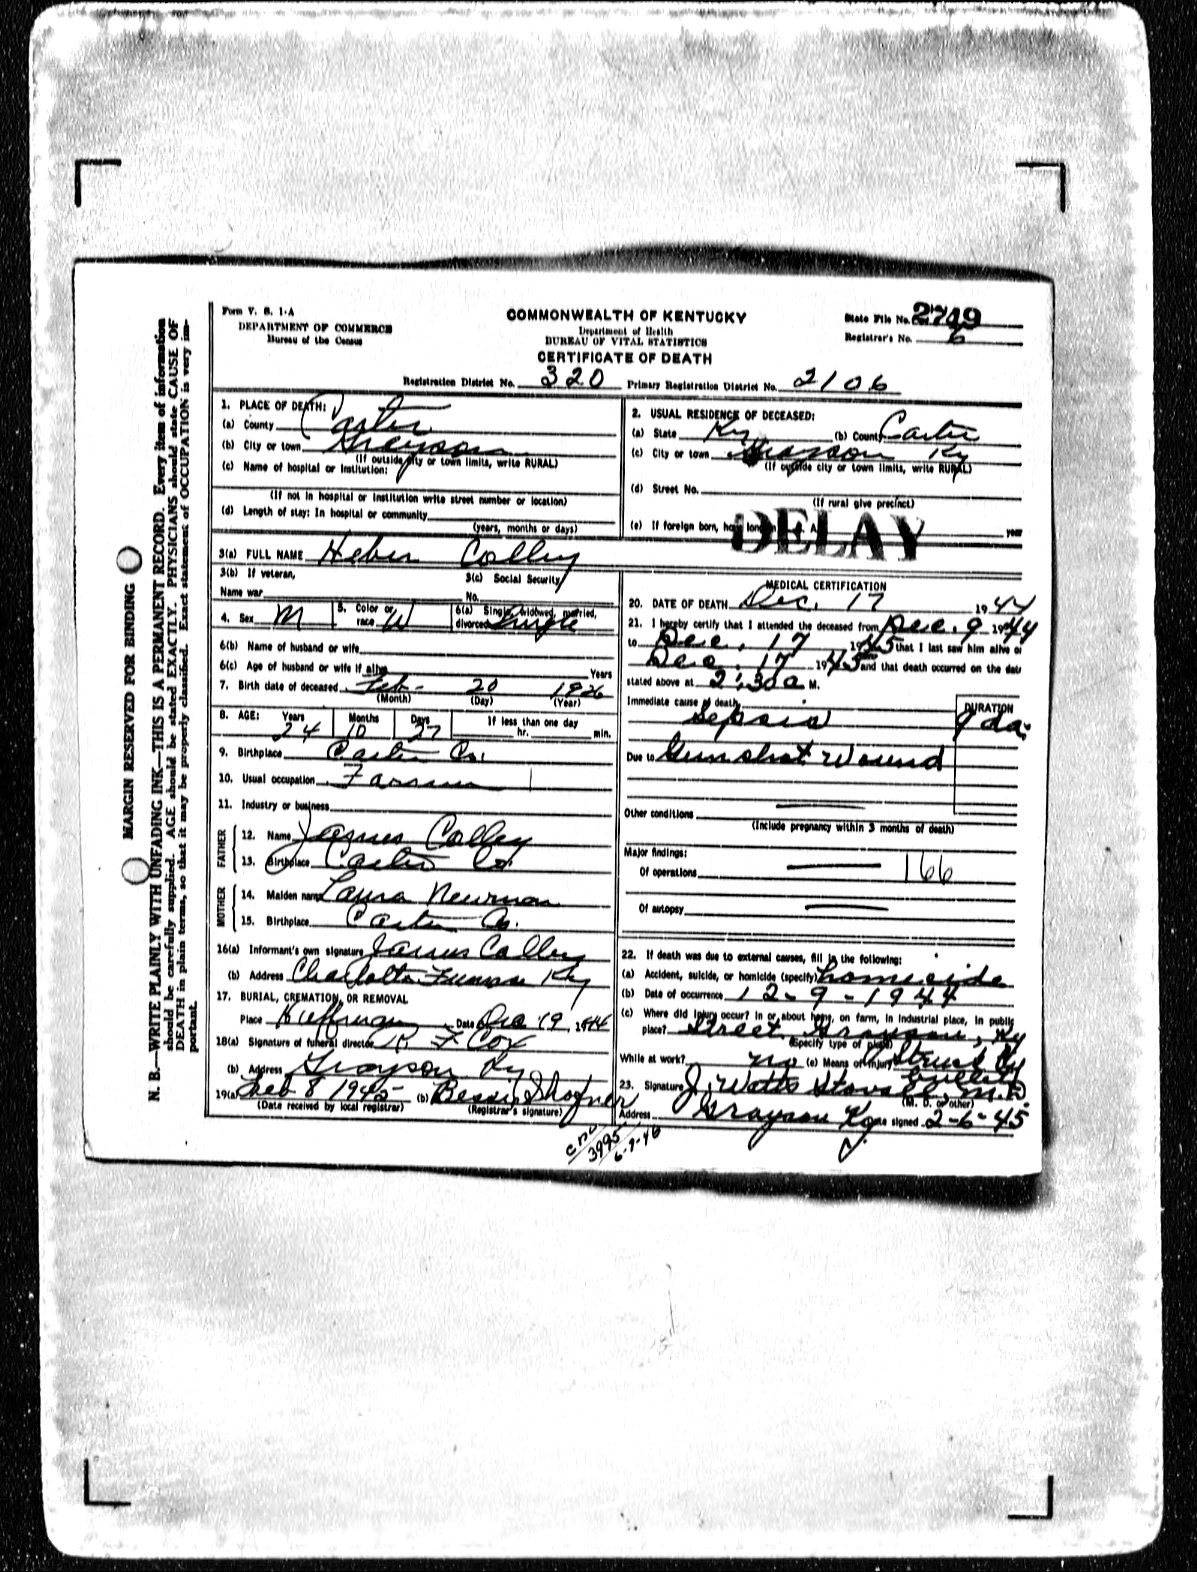 Form V. S. 1-A
DEPARTMENT OF COMMERCE
Bureau of the Census
COMMONWEALTH OF KENTUCKY
Department of Health
BUREAU OF VITAL STATISTICS
CERTIFICATE OF DEATH
State File No. 2749
Registrar's No. 6
Registration District No. 320 Primary Registration District No. 2106
MARGIN RESERVED FOR BINDING
N. B.—WRITE PLAINLY WITH UNFADING INK—THIS IS A PERMANENT RECORD. Every item of information
should be carefully supplied. AGE should be stated EXACTLY. PHYSICIANS should state CAUSE OF
DEATH in plain terms, so that it may be properly classified. Exact statement of OCCUPATION is very im-
portant.
1. PLACE OF DEATH:
(a) County Carter
(b) City or town Grayson
(If outside city or town limits, write RURAL)
(c) Name of hospital or institution:
(If not in hospital or institution write street number or location)
(d) Length of stay: In hospital or community
(years, months or days)
2. USUAL RESIDENCE OF DECEASED:
(a) State Ky (b) County Carter
(c) City or town Grayson Ky
(If outside city or town limits, write RURAL)
(d) Street No.
(If rural give precinct)
(e) If foreign born, how long in U. S. A. year
DELAY
3(a) FULL NAME Heber Colley
3(b) If veteran,
Name war
3(c) Social Security
No.
4. Sex M 5. Color or race W 6(a) Single, widowed, married, divorced Single
6(b) Name of husband or wife
6(c) Age of husband or wife if alive Years
7. Birth date of deceased Feb- 20
(Month) (Day) (Year)
8. AGE: Years 24 Months 10 Days 27 If less than one day hr. min.
9. Birthplace Carter Co.
10. Usual occupation Farmer
11. Industry or business
FATHER
12. Name James Colley
13. Birthplace Carter Co.
MOTHER
14. Maiden name Laura Newman
15. Birthplace Carter Co.
16(a) Informant's own signature James Colley
(b) Address Charlotte Furnace Ky
17. BURIAL, CREMATION, OR REMOVAL
Place Huffman Date Dec 19, 1944
18(a) Signature of funeral director R. F Cox
(b) Address Grayson Ky
19(a) Feb 8 1945 (b) Bessie
(Date received by local registrar) (Registrar's signature)
MEDICAL CERTIFICATION
20. DATE OF DEATH Dec. 17 1944
21. I hereby certify that I attended the deceased from Dec. 9 1944
to Dec. 17 1945 that I last saw him alive on
Dec. 17 1945 and that death occurred on the date
stated above at 2:30 a M.
Immediate cause of death DURATION
Sepsis 9 da.
Due to Gunshot Wound
Other conditions
(Include pregnancy within 3 months of death)
Major findings:
Of operations 166
Of autopsy
22. If death was due to external causes, fill in the following:
(a) Accident, suicide, or homicide (specify) homicide
(b) Date of occurrence 12-9-1944
(c) Where did injury occur? In or about home, on farm, in industrial place, in public
place? Street Grayson, Ky
(Specify type of place)
While at work? no (e) Means of injury Struck by
bullet
23. Signature J. Watts Stovall, M.D.
(M. D. or other)
Address Grayson Ky Date signed 2-6-45
3995
6-7-46